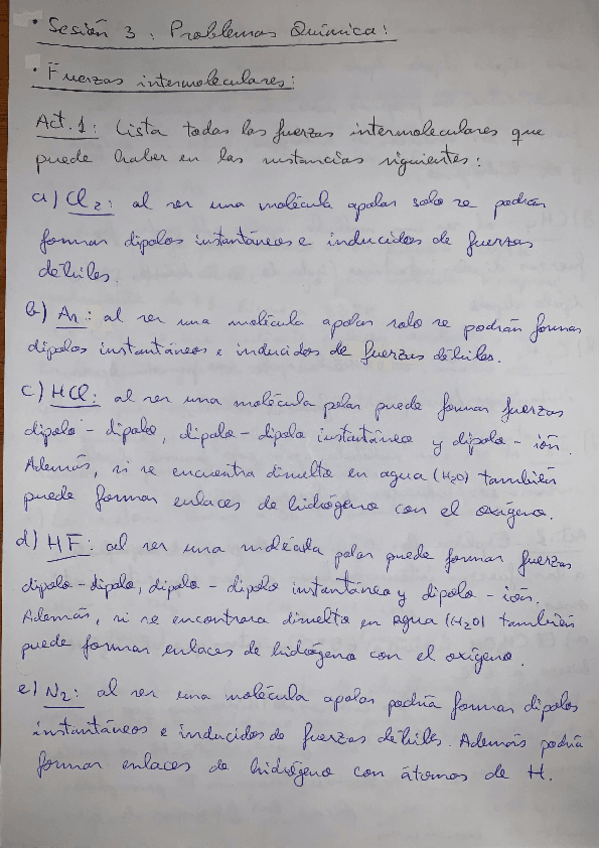 · Sesión 3: Problemas Química:
· Fuerzas intermoleculares:
Act. 1: Lista todas las fuerzas intermoleculares que
puede haber en las sustancias siguientes:
a) Cl2: al ser una molécula apolar solo se podrán
formar dipolos instantáneos e inducidos de fuerzas
débiles.
b) Ar: al ser una molécula apolar solo se podrán formar
dipolos instantáneos e inducidos de fuerzas débiles.
c) HCl: al ser una molécula polar puede formar fuerzas
dipolo - dipolo, dipolo - dipolo instantáneo y dipolo - ión.
Además, si se encuentra disuelto en agua (H2O) también
puede formar enlaces de hidrógeno con el oxígeno.
d) HF: al ser una molécula polar puede formar fuerzas
dipolo - dipolo, dipolo - dipolo instantáneo y dipolo - ión.
Además, si se encontrara disuelto en agua (H2O) también
puede formar enlaces de hidrógeno con el oxígeno.
e) N2: al ser una molécula apolar podría formar dipolos
instantáneos e inducidos de fuerzas débiles. Además podría
formar enlaces de hidrógeno con átomos de H.